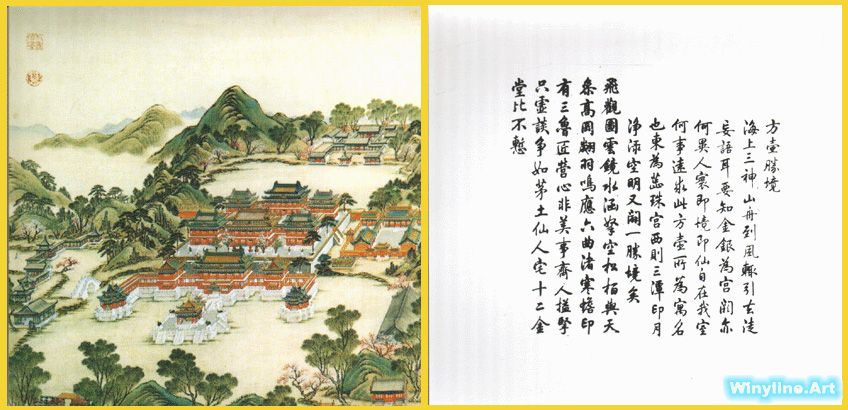 方壺勝境
海上三神山舟到風輒引去徒
妄語耳要知金銀為宮闕亦
何異人寰即境即仙自在我室
何事遠求此方壺所為寓名
也東為蕊珠宮西則三潭印月
淨淥空明又闢一勝境矣
飛觀圖雲鏡水涵拏空松柏與天
參高岡翽羽鳴應六曲渚寒蟾印
有三魯匠營心非美事齊人搤掔
只虛談爭如茅土仙人宅十二金
堂比不慙
Winyline.Art